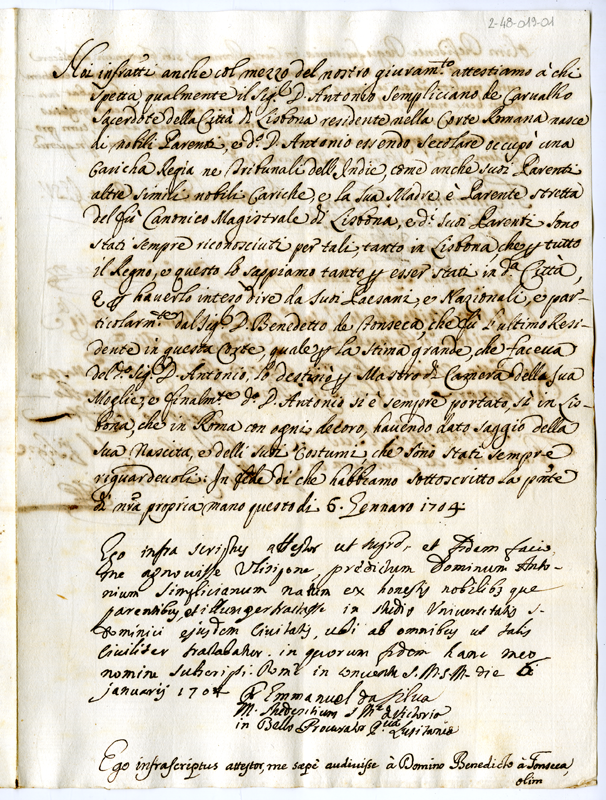 2-48-019-01
Noi infratti anche col mezzo del nostro giuram.to attestiamo à chi
spetta qualmente il Sig.r D. Antonio Sempliciano de Carvalho
Sacerdote della Città di Lisbona residente nella Corte Romana nasce
di nobili Parenti, e d.o D. Antonio essendo Secolare occupò una
Caricha Regia ne Tribunali dell'Indie, come anche suoi Parenti
altre simili nobili Cariche, e la sua Madre è Parente stretta
del fù Canonico Magistrale di Lisbona, e d.i suoi Parenti sono
stati sempre riconosciuti per tali, tanto in Lisbona, che p tutto
il Regno, e questo lo sappiamo tanto p esser stati in d.a Città,
e p haverlo inteso dire da suoi Paesani, e Nazionali, e par-
ticolarm.te dal Sig.r D. Benedetto de Fonseca, che fù l'ultimo Resi-
dente in questa Corte, quale p la stima grande, che faceva
del d.o Sig.r D. Antonio, lo destinò p Mastro di Camera della sua
Moglie, e finalm.te d.o D. Antonio si è sempre portato, sì in Lis-
bona, che in Roma con ogni decoro, havendo dato saggio della
sua Nascita, e delli suoi Costumi, che sono stati sempre
riguardevoli: In fede di che habbiamo sottoscritto la pnte
di nra propria mano questo dì 6. Gennaro 1704
Ego infra scriptus attestor ut supra, et fidem facio
me agnovisse Ulisipone, prędictum Dominum Anto-
nium Simplicianum natum ex honestis nobilibq que
parentibus et illum pertractasse in studio Universitatis S.
Dominici ejusdem Civitatis, ubi ab omnibus ut talis
Civiliter tractabatur. in quorum fidem hanc meo
nomine subscripsi. Romę in conventu S. M. S. M. die 6
januarij 1704
Fr. Emmanuel da Silva
M. Studentium S. Mę de Victoria
in Bello Procurator P. Lusitanię
Ego infrascriptus attestor, me sæpè audivisse à Domino Benedicto à Fonseca,
olim